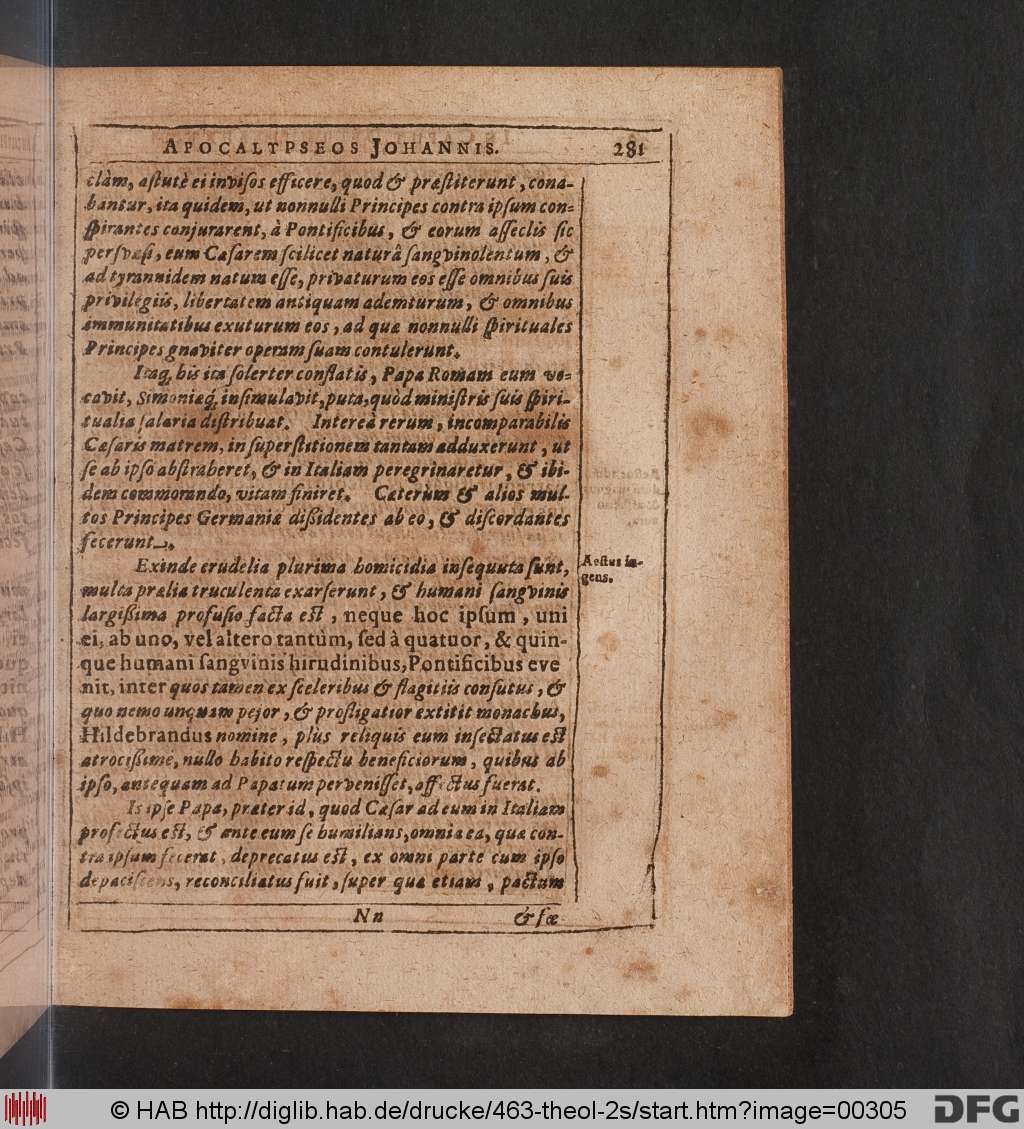 APOCALYPSEOS JOHANNIS. 281
clàm, aſtutè ei inviſos efficere, quod & præſtiterunt, cona-
bantur, ita quidem, ut nonnulli Principes contra ipſum con-
ſpirantes conjurarent, à Pontificibus, & eorum aſſeclis ſic
perſvaſi, eum Cæſarem ſcilicet naturâ ſangvinolentum, &
ad tyrannidem natum eſſe, privaturum eos eſſe omnibus ſuis
privilegiis, libertatem antiquam ademturum, & omnibus
immunitatibus exuturum eos, ad quæ nonnulli ſpirituales
Principes gnaviter operam ſuam contulerunt.
Itaq; his ita ſolerter conflatis, Papa Romam eum vo-
cavit, Simoniæq́; inſimulavit, puta, quòd miniſtris ſuis ſpiri-
tualia ſalaria diſtribuat. Intereà rerum, incomparabilis
Cæſaris matrem, in ſuperſtitionem tantam adduxerunt, ut
ſe ab ipſo abſtraheret, & in Italiam peregrinaretur, & ibi-
dem commorando, vitam finiret. Cæterùm & alios mul-
tos Principes Germaniæ dißidentes ab eo, & diſcordantes
fecerunt.
Exinde crudelia plurima homicidia inſequuta ſunt,
multa prælia truculenta exarſerunt, & humani ſangvinis
largißima profuſio facta eſt, neque hoc ipſum, uni
ei, ab uno, vel altero tantùm, ſed à quatuor, & quin-
que humani ſangvinis hirudinibus, Pontificibus eve
nit, inter quos tamen ex ſceleribus & flagitiis conſutus, &
quo nemo unquam pejor, & profligatior extitit monachus,
Hildebrandus nomine, plùs reliquis eum inſectatus eſt
atrocißimè, nullo habito reſpectu beneficiorum, quibus ab
ipſo, antequam ad Papatum perveniſſet, affectus fuerat.
Is ipſe Papa, præter id, quod Cæſar ad eum in Italiam
profectus eſt, & ante eum ſe humilians, omnia ea, quæ con-
tra ipſum fecerat, deprecatus eſt, ex omni parte cum ipſo
depaciſcens, reconciliatus fuit, ſuper quæ etiam, pactum
Aeſtus in-
gens.
Nn & fœ
© HAB http://diglib.hab.de/drucke/463-theol-2s/start.htm?image=00305 DFG